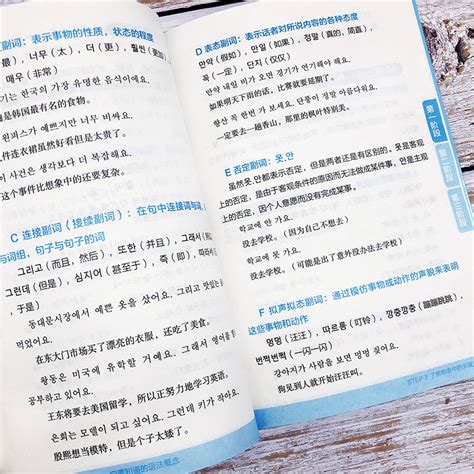 副词：表示事物的性质，状态的程度
最），너무（太），더（更），훨씬（更加），
매우（非常）
기는 한국의 가장 유명한 음식이에요.
是韩国最有名的食物。
원피스가 예쁘지만 너무 비싸요.
件连衣裙虽然好看但是太贵了。
이 사건은 생각보다 더 복잡해요.
这个事件比想象中的还要复杂。
C 连接副词（接续副词）：在句中连接词与词，
与词组，句子与句子的词
그리고（而且，然后），또한（并且），그래서（所
그런데（但是），심지어（甚至于），즉（即），따라서
，于是）
동대문시장에서 예쁜 옷을 샀어요. 그리고
먹었어요.
在东大门市场买了漂亮的衣服，还吃了美食。
왕동은 미국에 유학할 거예요. 그래서
공부하고 있어요.
王东将要去美国留学，所以正努力地学习英语。
은희는 모델이 되고 싶어요. 그런데 키가 작아요.
殷熙想当模特，但是个子太矮了。
知道的语法概念
D 表态副词：表示话者对所说内容的各种态度
만약（假如），만일（如果），정말（真的，简直），
꼭（一定），단지（仅仅）
만약 내일 비가 오면 경기가 연기해야 해요.
如果明天下雨的话，比赛就要延期了。
향산에 꼭 한번 가 보세요. 단풍이 정말 아름다워요.
一定要去一趟香山，那里的枫叶特别美。
E 否定副词：못, 안
虽然못, 안都表示否定，但是两者还是有区别的。못是客观
上的否定，是由于客观条件的原因而无法做成某件事，안是主观
上的否定，因个人意愿而没有完成某事。
학교에 안 가요.
没去学校。（因为自己不想去）
학교에 못 가요.
没去学校。（可能是出了意外没办法去学校）
F 拟声拟态副词：通过模仿事物或动作的声貌来表明
这些事物和动作
멍멍（汪汪），따르릉（叮铃），깡충깡충（蹦蹦跳跳），
번쩍번쩍（一闪一闪）
강아지가 사람을 보면 멍멍 짖어요.
狗见到人就开始汪汪叫。
STEP 2 了解韩语中的
第一阶段
第二阶段
第三阶段